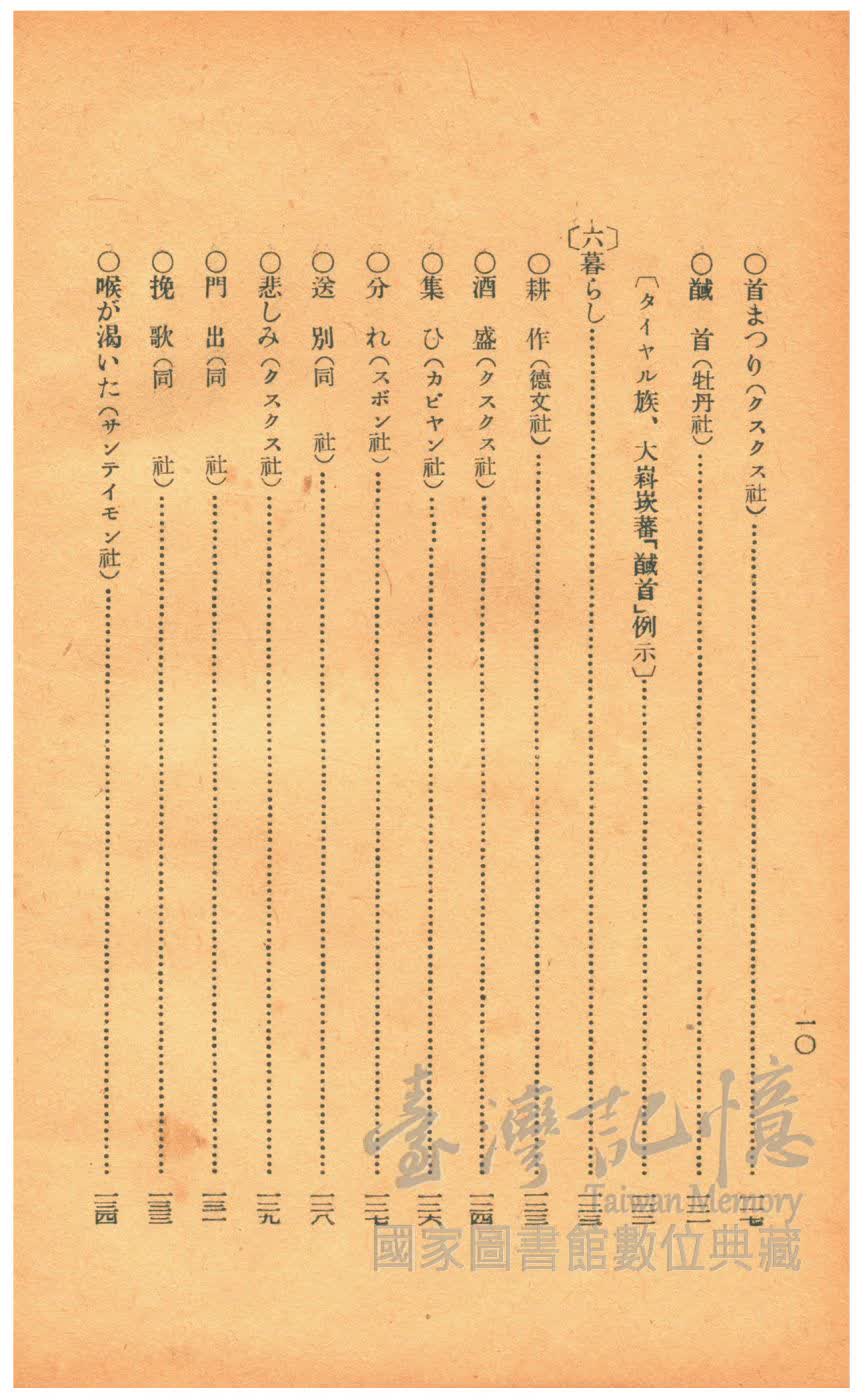 一〇
○首まつり(クスクス社)……一一七
○馘首(牡丹社)……
〔タイヤル族、大嵙崁蕃「馘首」例示〕……
〔六〕暮らし……一二三
○耕作(德文社)……一二三
○酒盛(クスクス社)……一二四
○集ひ(カピヤン社)……一二六
○分れ(スボン社)……一二七
○送別(同 社)……一二八
○悲しみ(クスクス社)……一二九
○門出(同 社)……
○挽歌(同 社)……一三三
○喉が渇いた(サンテイモン社)……一三四
臺灣記憶
Taiwan Memory
國家圖書館數位典藏